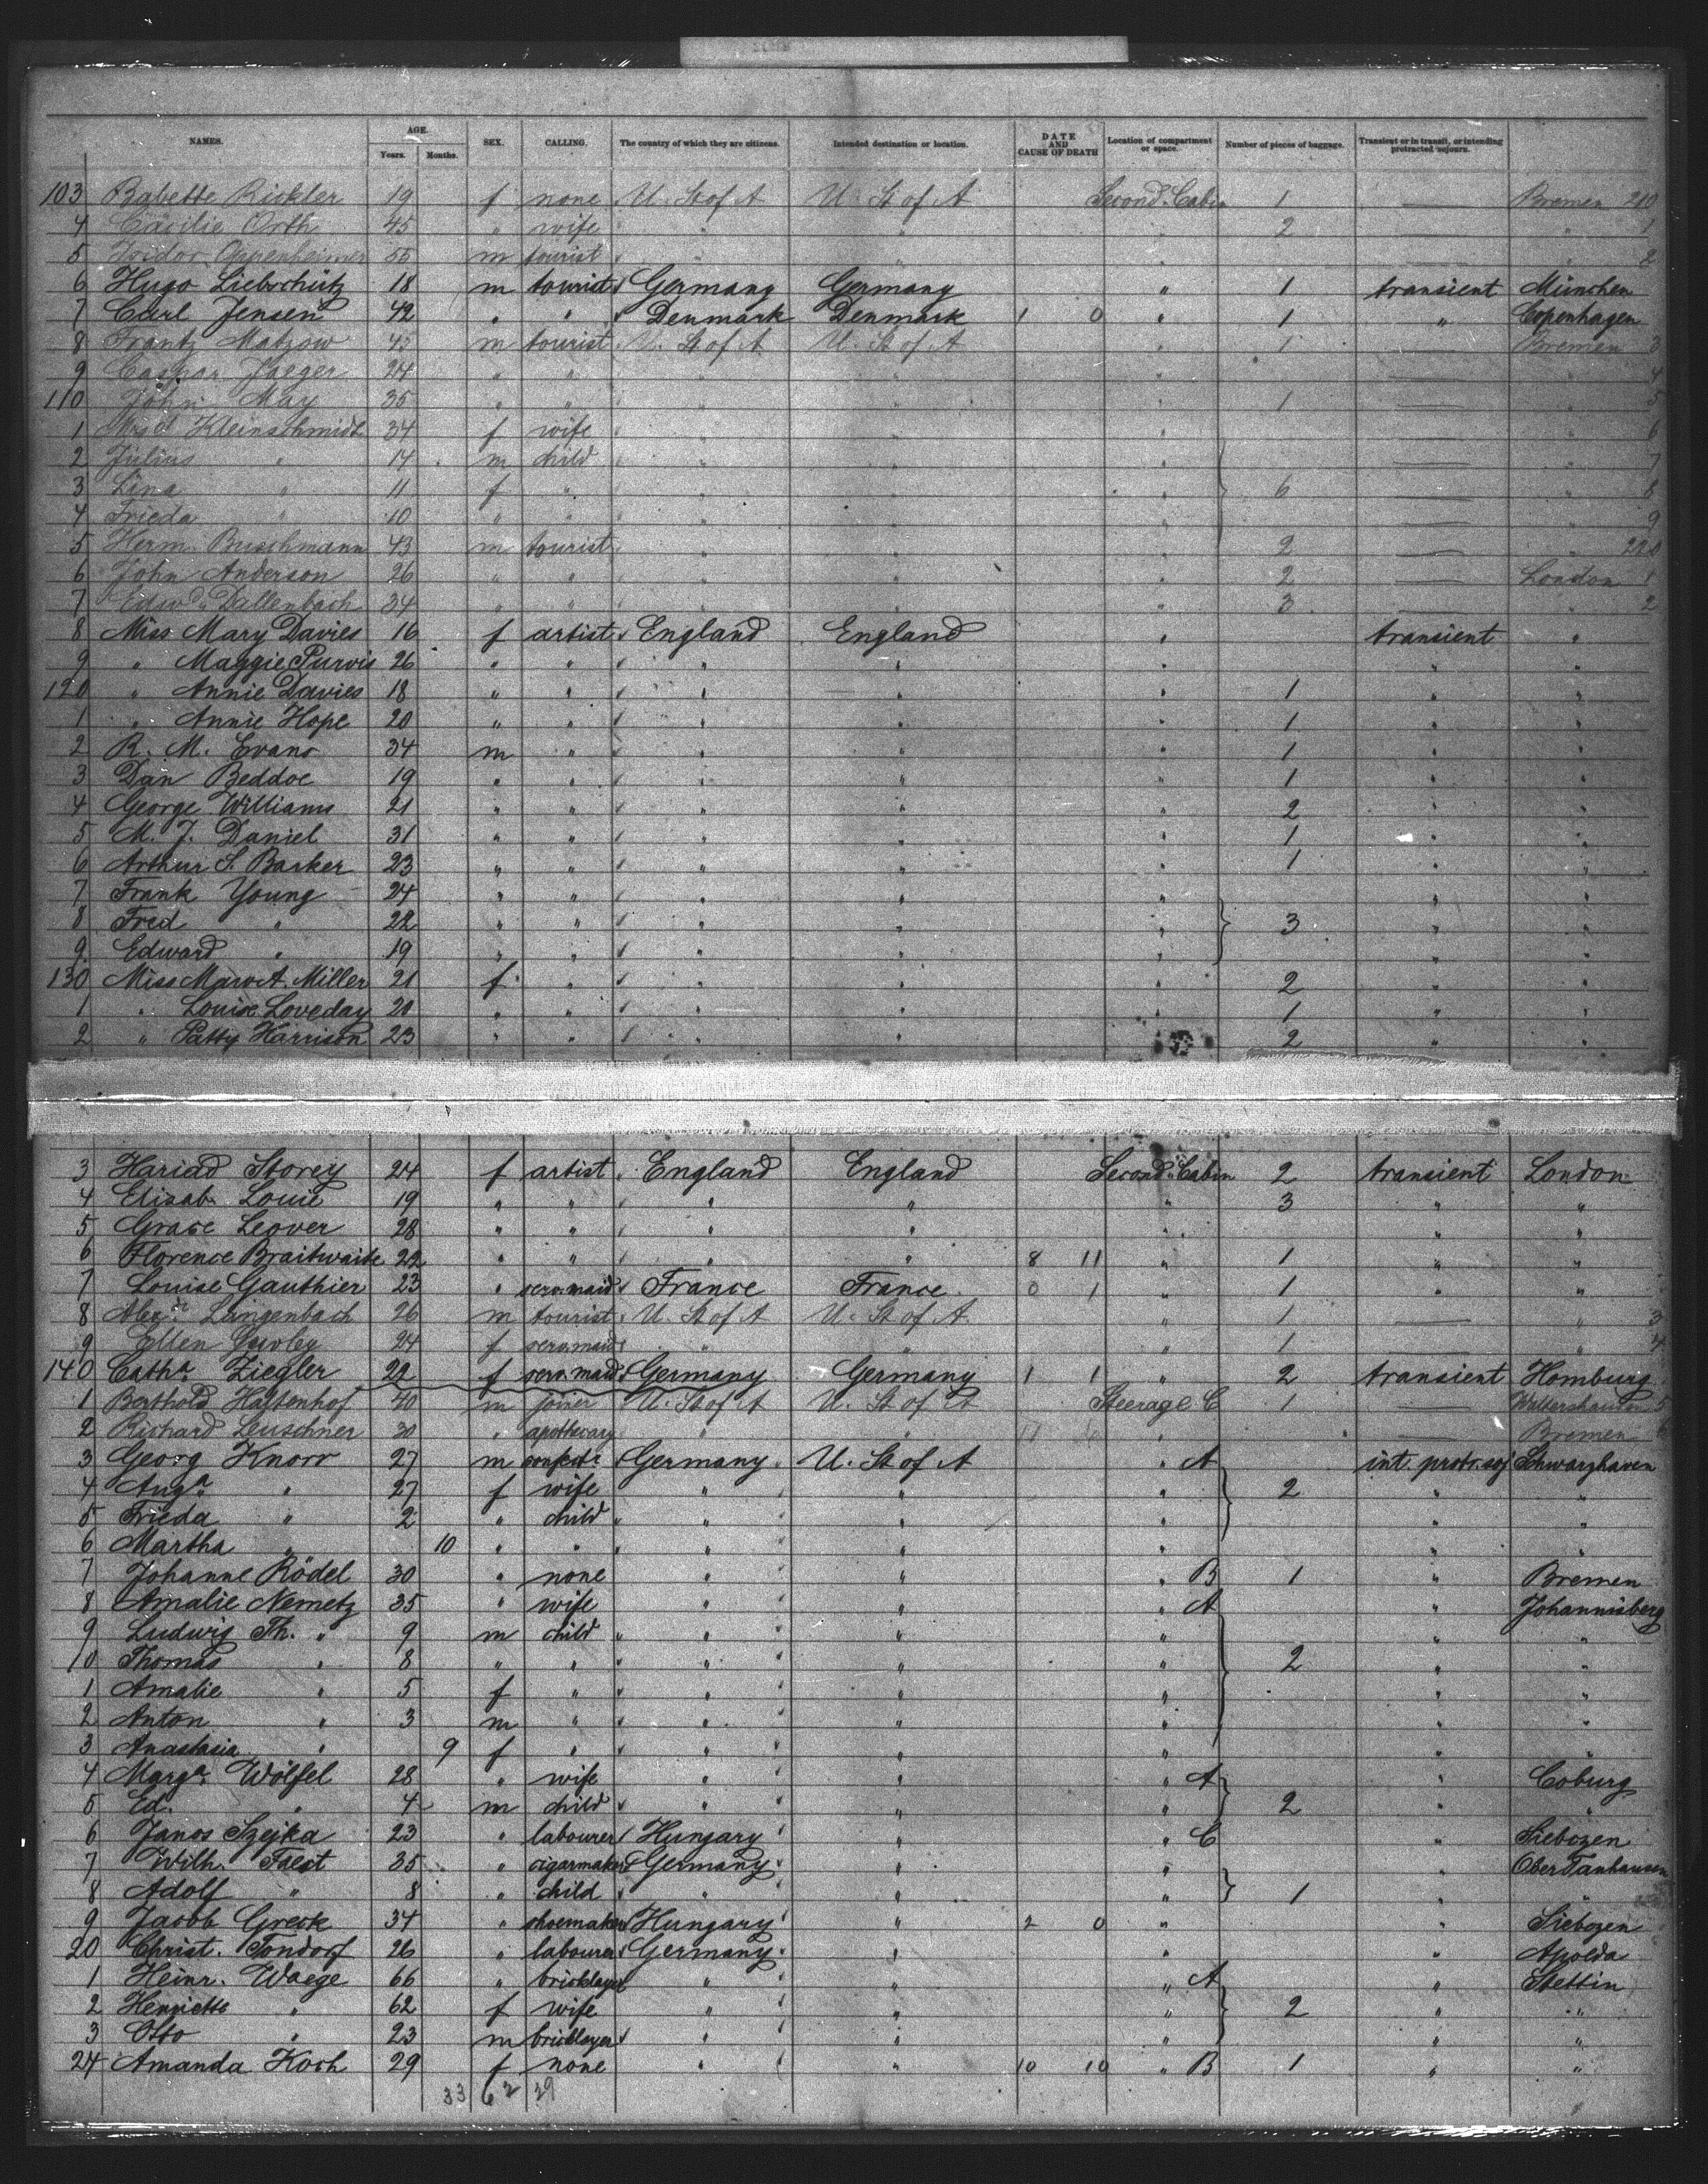 NAMES. AGE. Years. Months. SEX. CALLING. The country of which they are citizens. Intended destination or location. DATE AND CAUSE OF DEATH Location of compartment or space. Number of pieces of baggage. Transient or in transit, or intending protracted sojourn.
103 Babette Rickler 19 f none U. St of A U. St of A Second Cabin 1 — Bremen 210
4 Cäcilie Orth 45 " wife " " " 2 — " 1
5 Isidor Oppenheimer 55 m tourist " " " — " 2
6 Hugo Liebschütz 18 m tourist Germany Germany " 1 transient München
7 Carl Jensen 42 " " Denmark Denmark 1 0 " 1 " Copenhagen
8 Frantz Matzow 43 m tourist U. St of A U. St of A " 1 — Bremen 3
9 Caspar Jaeger 24 " " " " " — " 4
110 John May 35 " " " " " 1 — " 5
1 Kleinschmidt 34 f wife " " " — " 6
2 Julius " 14 m child " " " — " 7
3 Lina " 11 f " " " " 6 — " 8
4 Frieda " 10 " " " " " — " 9
5 Herm. Buschmann 43 m tourist " " " 2 — " 220
6 John Anderson 26 " " " " " 2 — London 1
7 Edwd. Dallenbach 34 " " " " " 3 — " 2
8 Miss Mary Davies 16 f artist England England " transient "
9 " Maggie Purvis 26 " " " " " " "
120 " Annie Davies 18 " " " " " 1 " "
1 " Annie Hope 20 " " " " " 1 " "
2 R. M. Evans 34 m " " " " 1 " "
3 Dan Beddoe 19 " " " " " 1 " "
4 George Williams 21 " " " " " 2 " "
5 M. J. Daniel 31 " " " " " 1 " "
6 Arthur S. Barker 23 " " " " " 1 " "
7 Frank Young 24 " " " " " " "
8 Fred " 22 " " " " " 3 " "
9 Edward " 19 " " " " " " "
130 Miss Miller 21 f " " " " 2 " "
1 " Louise Loveday 20 " " " " " 1 " "
2 " Patty Harrison 23 " " " " " 2 " "
3 Storey 24 f artist England England Second Cabin 2 transient London
4 Elisab. Louie 19 " " " " " 3 " "
5 Grace Leover 28 " " " " " " "
6 Florence Braitwaite 22 " " " " 8 11 " 1 " "
7 Louise Gauthier 23 " serv. maid France France 0 1 " 1 " "
8 Langenbach 26 m tourist U. St of A U. St of A " 1 — " 3
9 Ellen 24 f serv. maid " " " 1 — " 4
140 Catha. Ziegler 22 f serv. maid Germany Germany 1 1 " 2 transient Homburg
1 Berthold Haltenhof 40 m joiner U. St of A U. St of A Steerage C 1 — Waltershausen 5
2 Richard Leuschner 30 " apothecary " " " — Bremen 6
3 Georg Knorr 27 m Germany U. St of A " A int. protr. soj Schwarzhaven
4 Auga. " 27 f wife " " " 2 " "
5 Frieda " 2 " child " " " " "
6 Martha " 10 " " " " " " "
7 Johanne Rödel 30 " none " " " B 1 " Bremen
8 Amalie Nemetz 35 " wife " " " A " Johannisberg
9 Ludwig Th. " 9 m child " " " " "
10 Thomas " 8 " " " " " 2 " "
1 Amalie " 5 f " " " " " "
2 Anton " 3 m " " " " " "
3 Anastasia " 9 f " " " " " "
4 Marga. Wölfel 28 " wife " " " A " Coburg
5 Ed. " 4 m child " " " 2 " "
6 Janos Szejka 23 " labourer Hungary " " C " Siebozen
7 Wilh. Faest 35 " cigarmaker Germany " " " Ober Tanhausen
8 Adolf " 8 " child " " " 1 " "
9 Jacob Greck 34 " shoemaker Hungary " 2 0 " " Siebozen
20 Christ. Tondorf 26 " labourer Germany " " " Apolda
1 Heinr. Waege 66 " bricklayer " " " A " Stettin
2 Henriette " 62 f wife " " " 2 " "
3 Otto " 23 m bricklayer " " " " "
24 Amanda Koch 29 f none " " 10 10 " B 1 " "
33 62 29